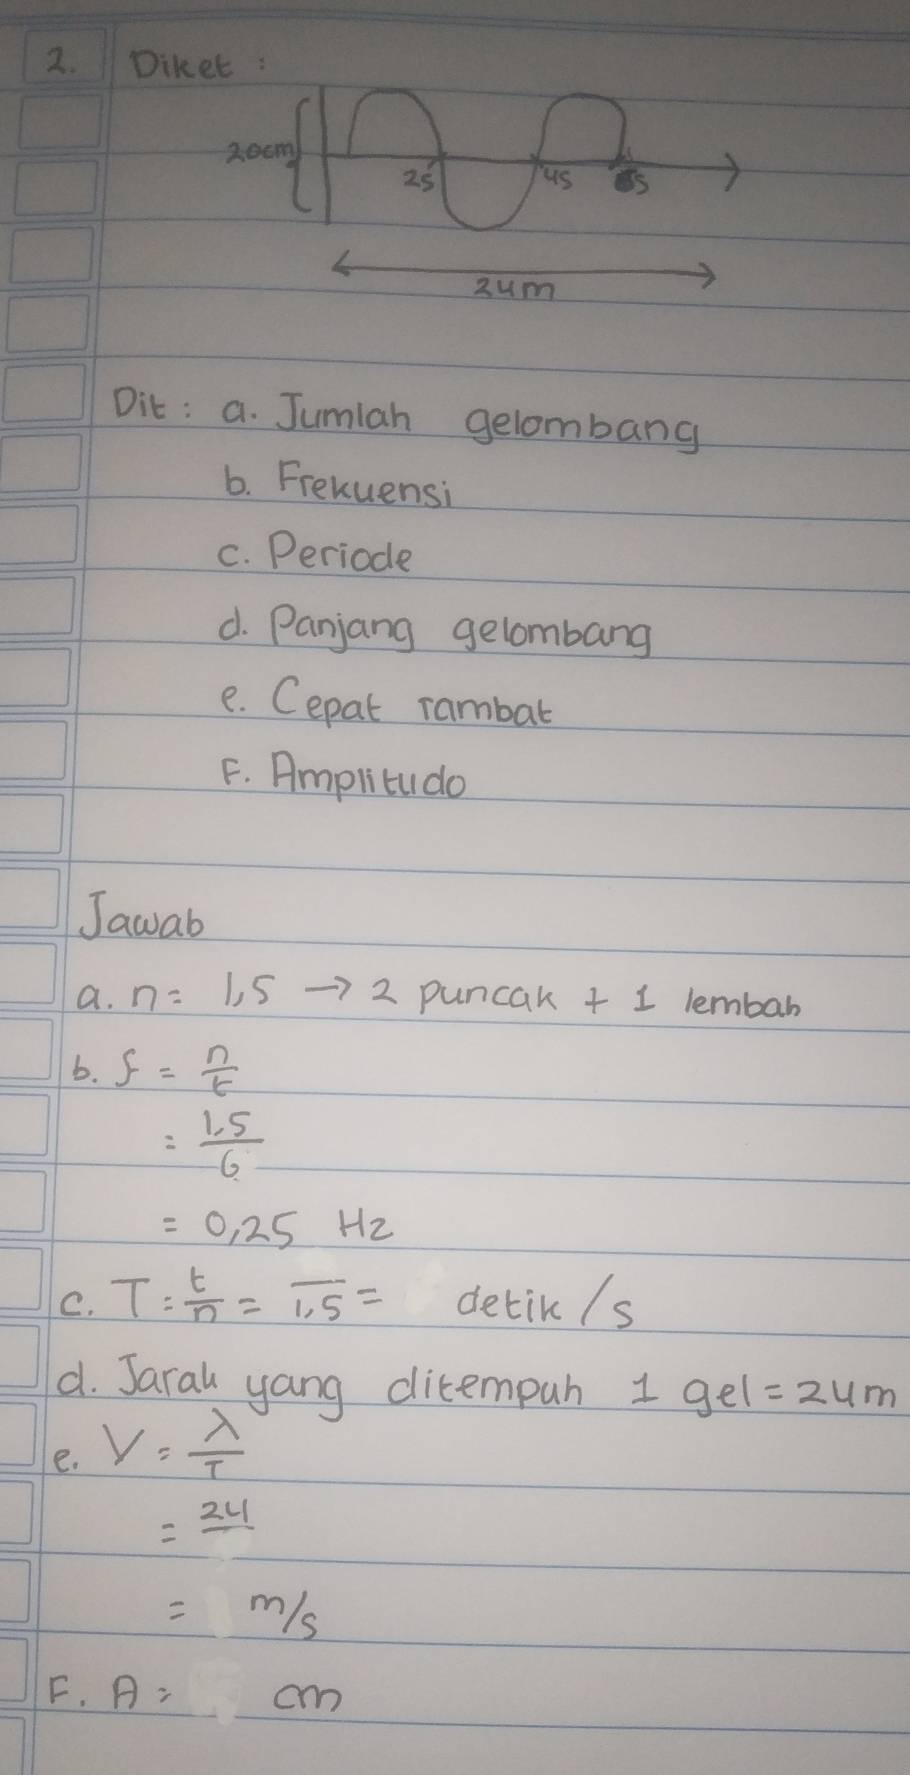 2. Diket :
20cm
2s 4s s
24m
Dit : a. Jumlah gelombang
b. Frekuensi
c. Periode
d. Panjang gelombang
e. Cepat rambat
F. Amplitudo
Jawab
a. n = 1,5 → 2 puncak + 1 lembah
b. f = n/t
= 1,5/6
= 0,25 Hz
c. T = t/n = /1,5 = detik/s
d. Jarak yang ditempuh 1 gel = 24m
e. V = λ/T
= 24/
= m/s
F. A = cm